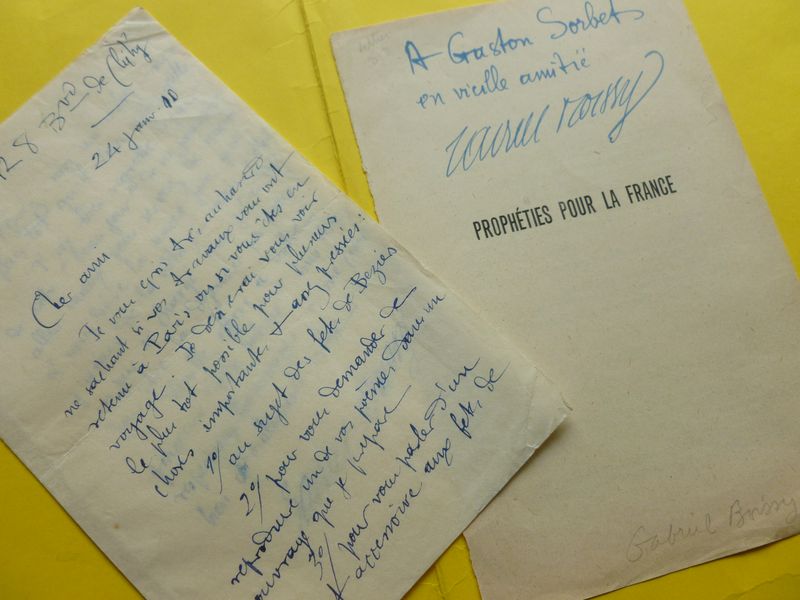 128 Bvd de Clichy
24 janv. 10
Cher ami
Je vous écris au hasard
ne sachant si vos travaux vous ont
retenu à Paris ou si vous êtes en
voyage. Je désirerai vous voir
le plus tôt possible pour plusieurs
choses importantes & assez pressées:
1o/ au sujet des fêtes de Béziers
2o/ pour vous demander de
reproduire un de vos poèmes dans un
ouvrage que je prépare
3o/ pour vous parler d'un
aux fêtes de
A Gaston Sorbets
en vieille amitié
Gabriel Boissy
PROPHÉTIES POUR LA FRANCE
Gabriel Boissy